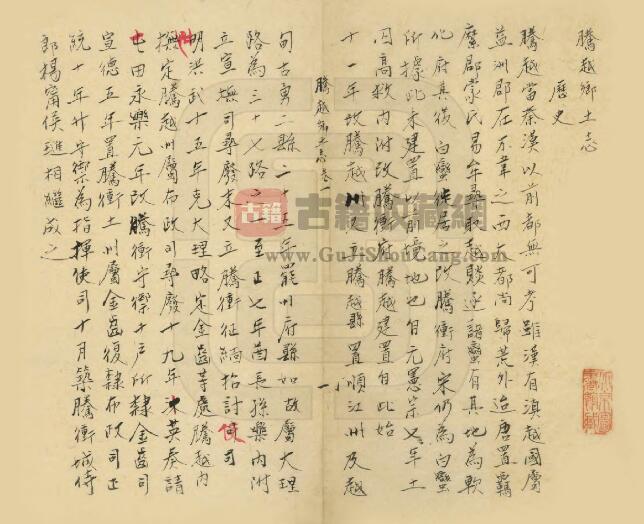 騰越鄉土志
歷史
騰越當秦漢以前都無可考雖漢有滇越國屬
益州郡在不韋之西大都尚歸荒外迨唐置羈
縻郡蒙氏易牟尋取越賧逐諸蠻有其地為軟
化府其後白蠻徙居之改騰衝府宋仍為白蠻
所據此未建置以前境地也自元憲宗七年土
冏高救內附改騰衝府騰越建置自此始
十一年改騰越州又立騰越縣置順江州及越
騰越鄉土志 卷一
一
甸古勇二縣二十五年罷州府縣如故屬大理
路為三十七路之一至正七年酋長孫樂內附
立宣撫司尋廢末又立騰衝征緬招討使司
明洪武十五年克大理略定金齒等處騰越內
撫定騰越州屬布政司尋廢十九年沐英奏請
屯田永樂元年改騰衝守禦千戶所隸金齒司
宣德五年置騰衝土州屬金齒復隸布政司正
統十年升守禦所為指揮使司十月築騰衝城侍
郎楊寧侯璡相繼成之
古籍
古籍收藏網
www.GuJiShouCang.com